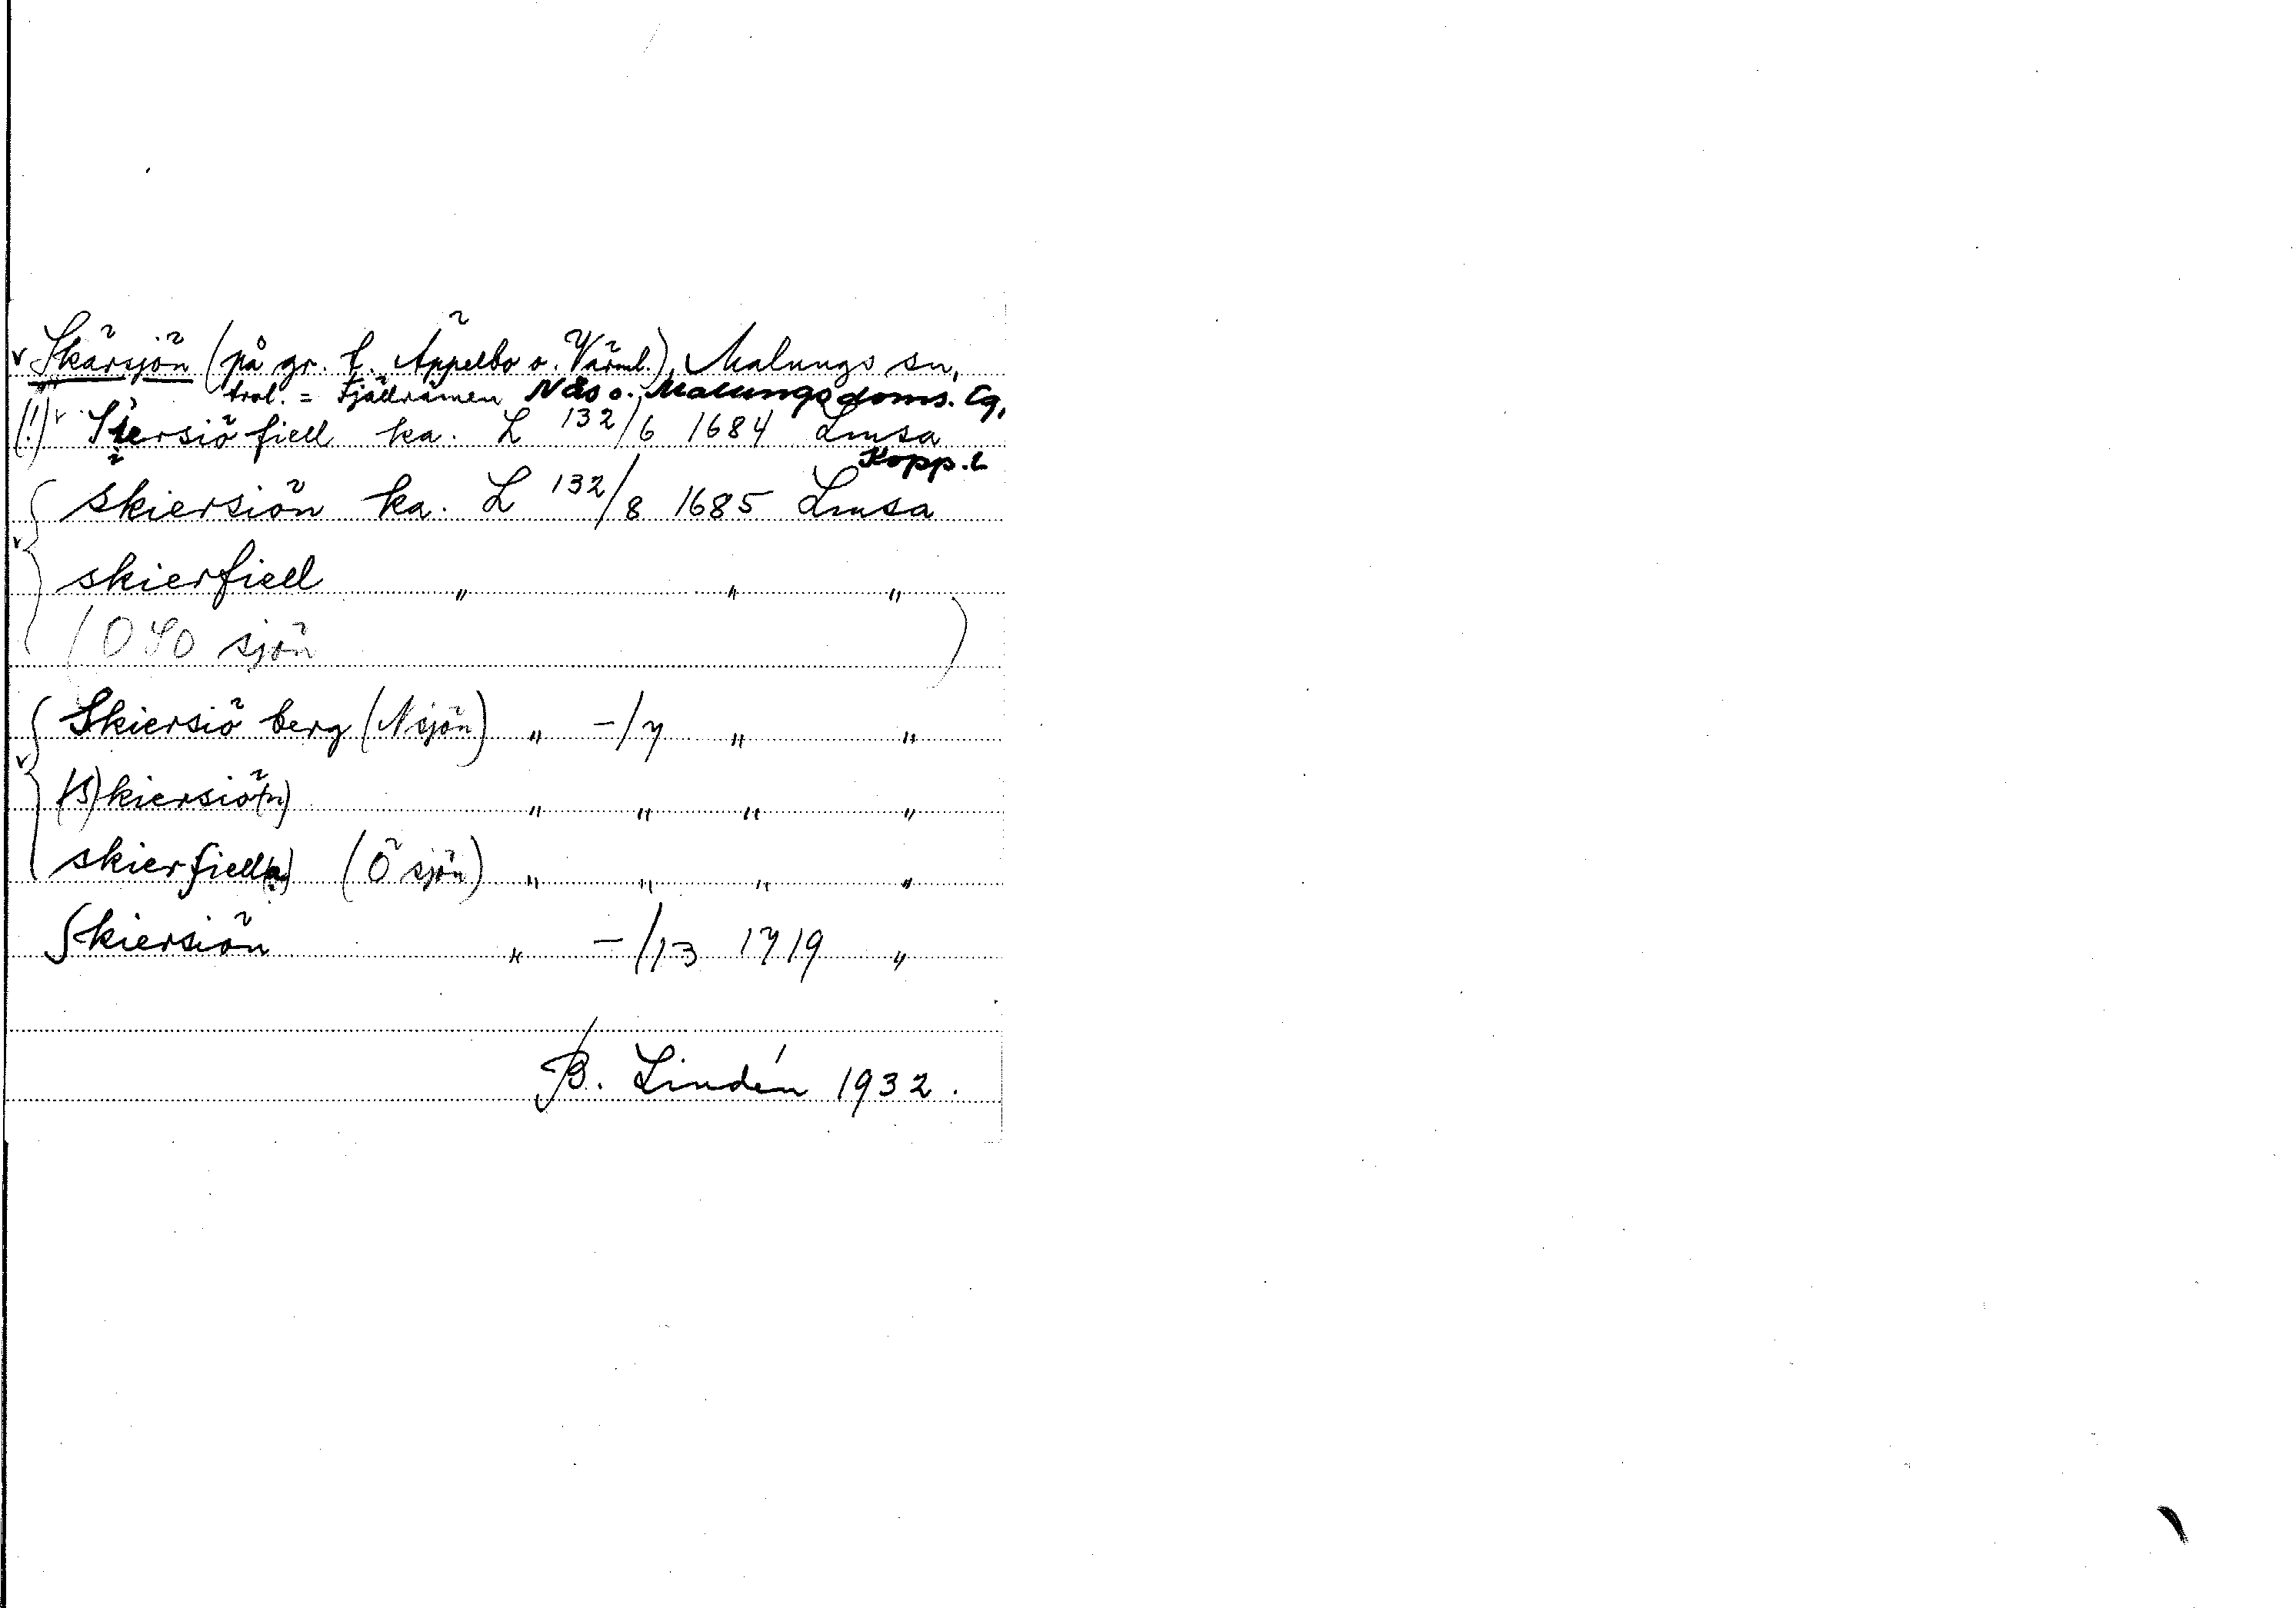 v Skärsjön (på gr. t. Äppelbo o. Värml.), Malungs sn,
trol. = Fjällrämen Näs o. Malungs doms. lg,
(!) v Stersiöfiell ka. L 132/6 1684 Lmsa
Kopp. l
skiersiön ka. L 132/8 1685 Lmsa
v skierfiell " " "
(OSO sjön )
Skiersiö berg (N sjön) " -/7 " "
v (S)kiersiö(n) " " " "
skierfiell(e) (Ö sjön) " " " "
Skiersiön " -/13 1719 "
B. Lindén 1932.